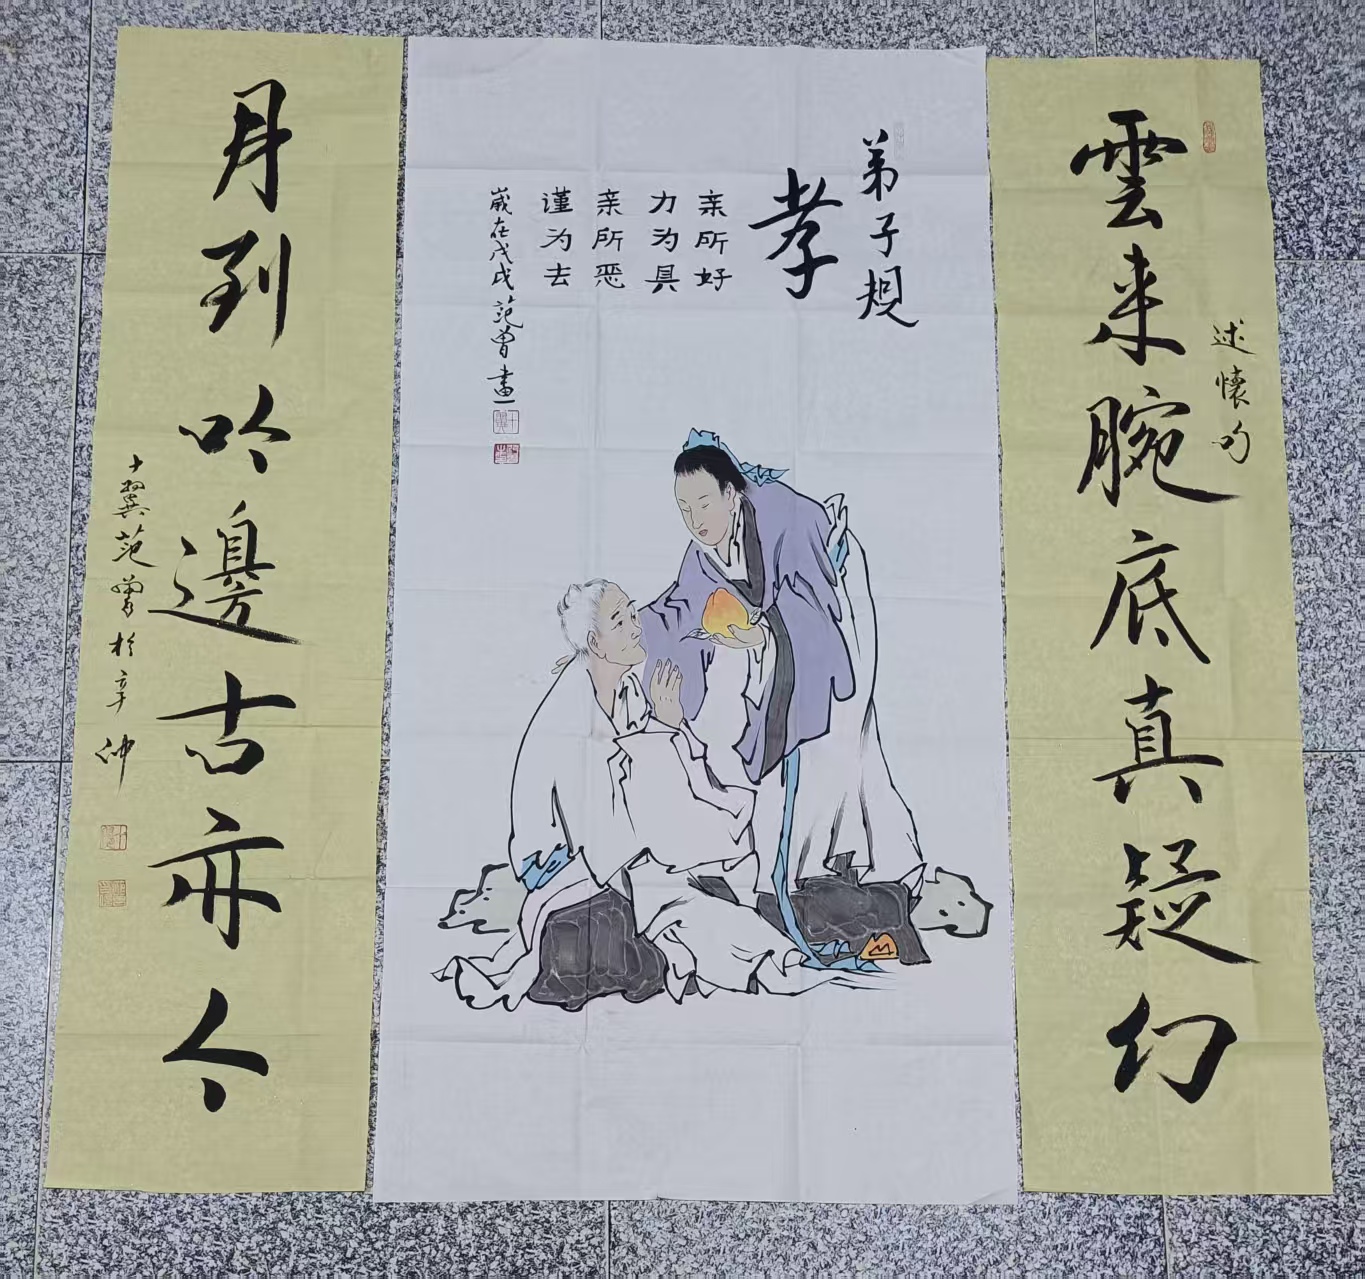 述懷句
雲来腕底真疑幻
弟子規
孝
亲所好
力为具
亲所恶
谨为去
嵗在戊戌范曾畫
月到吟邊古亦今
十翼范曾於辛